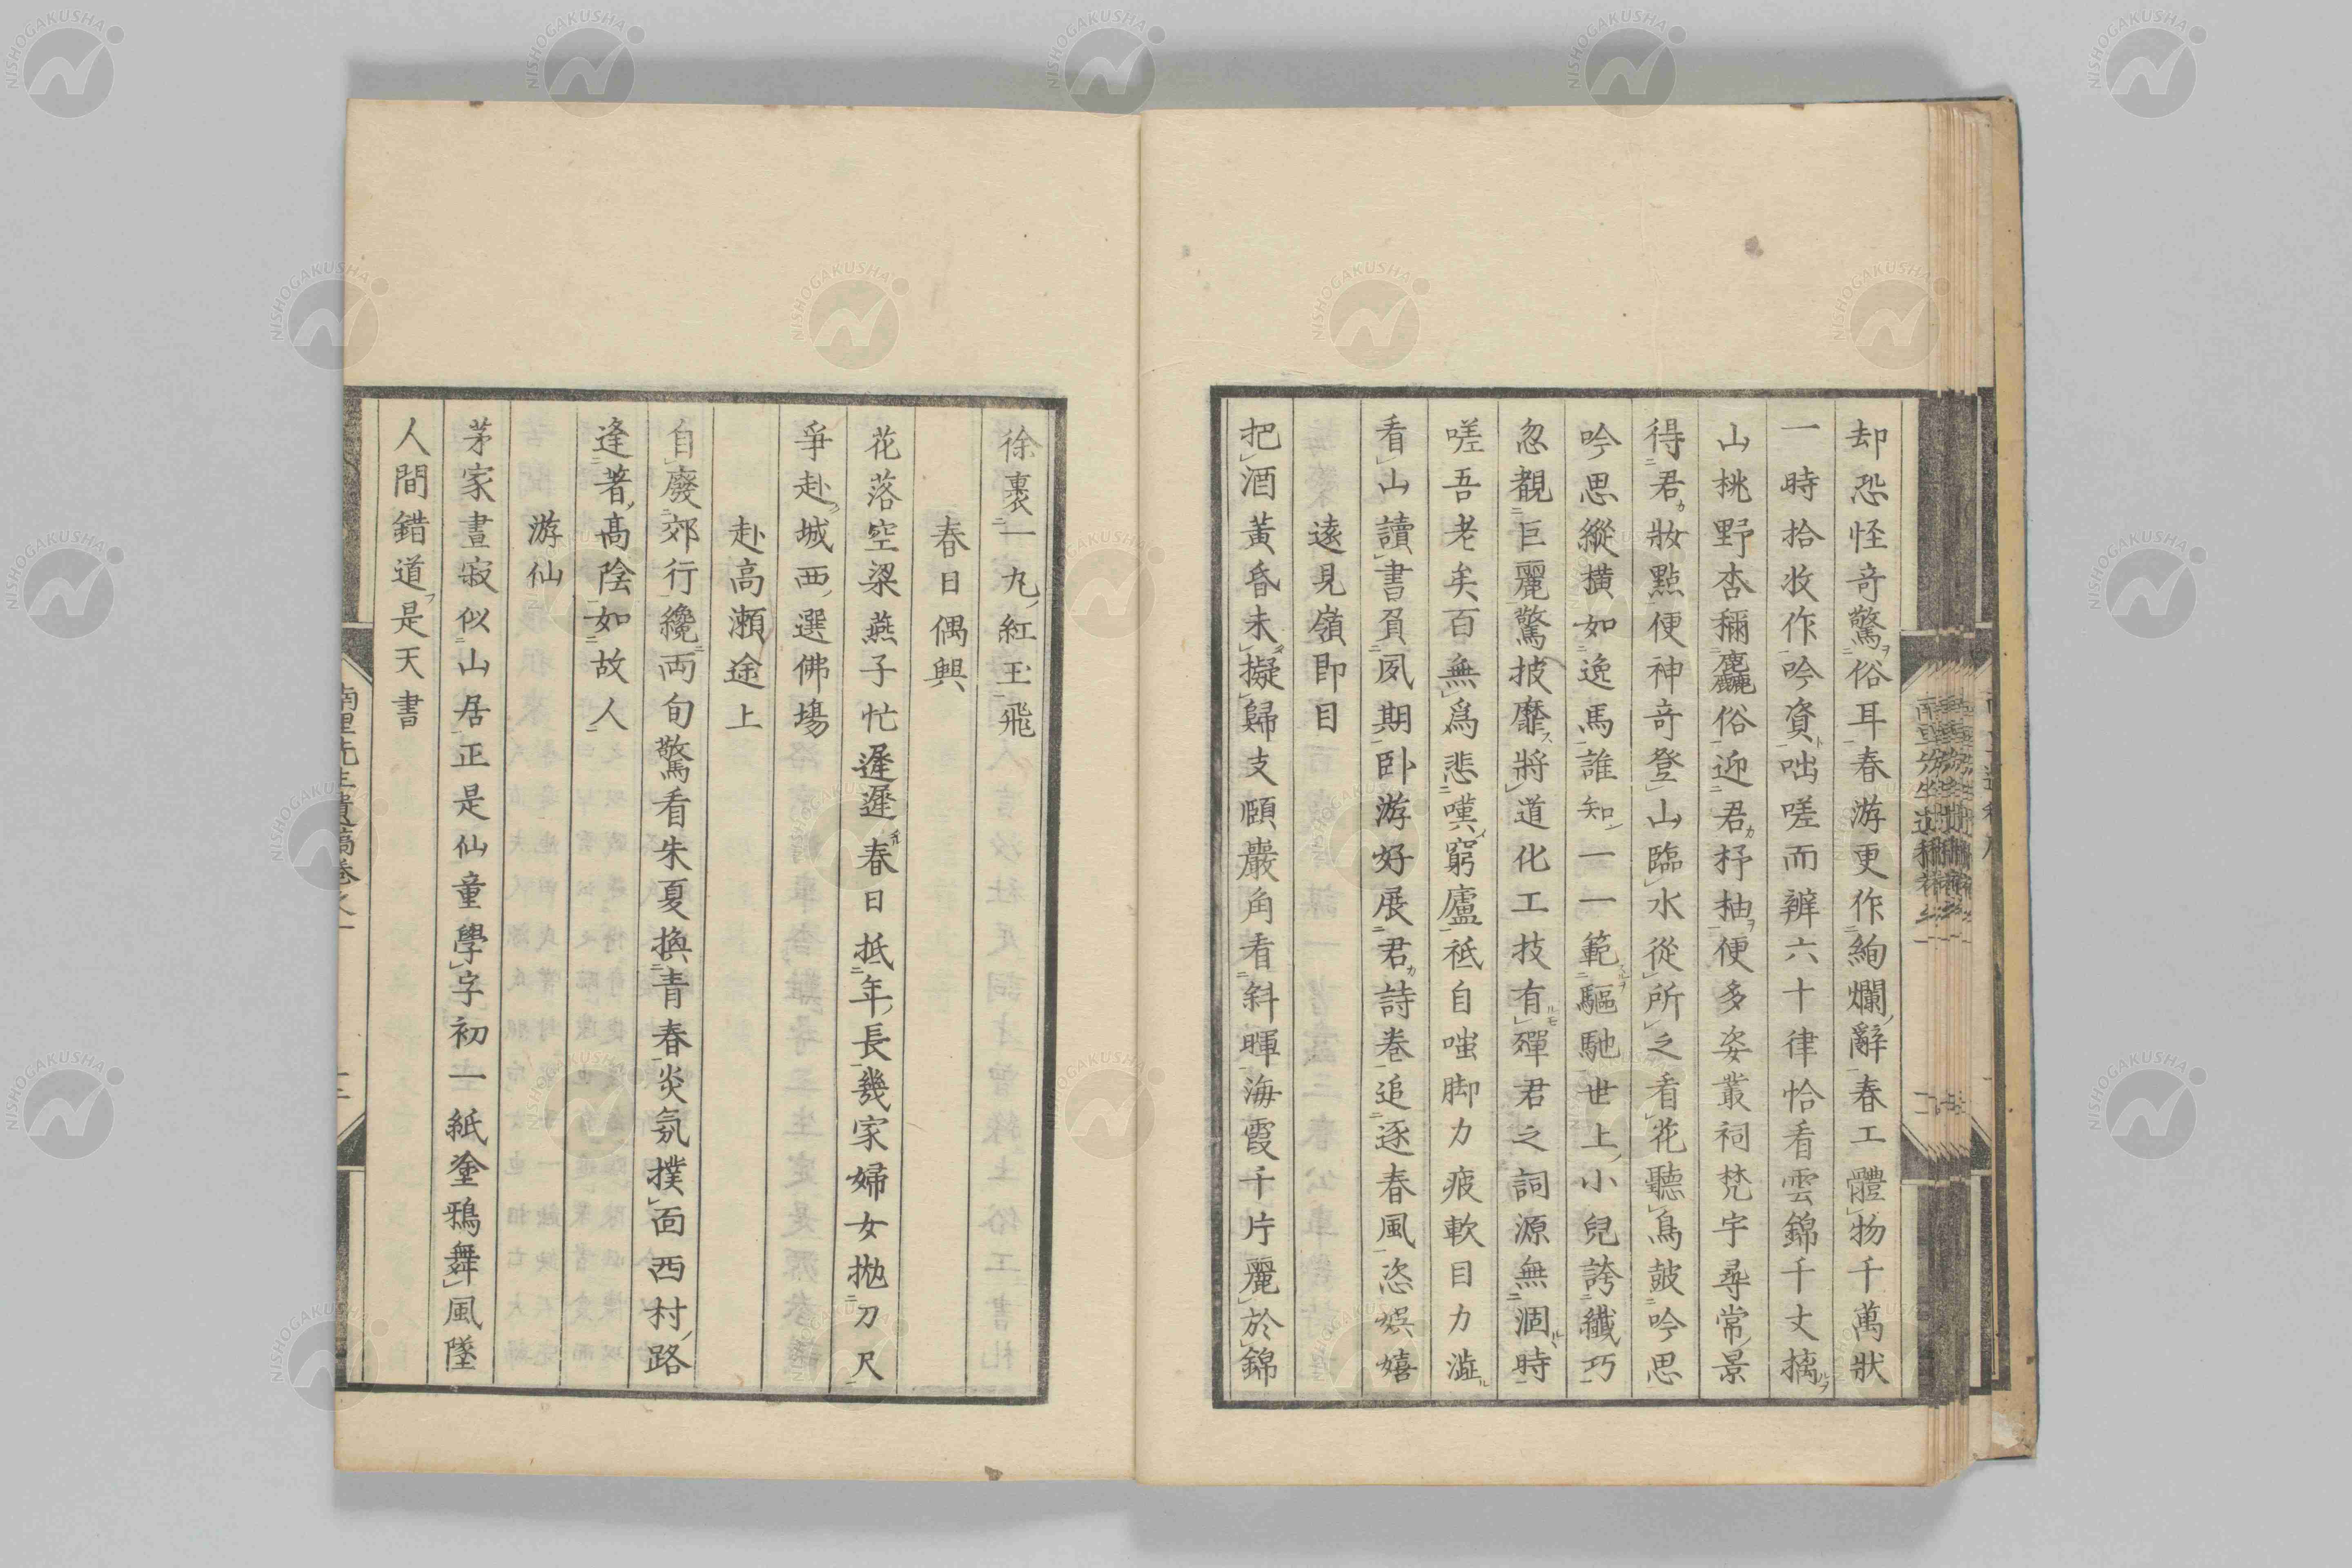 却恐怪奇驚俗耳春游更作絢爛辭春工體物千萬狀
一時拾收作吟資咄嗟而辨六十律恰看雲錦千丈摛
山桃野杏稱麤俗迎君抒抽便多姿叢祠梵宇尋常景
得君妝點便神奇登山臨水從所之看花聽鳥皷吟思
吟思縱横如逸馬誰知一一範驅馳世上小兒誇纎巧
忽覩巨麗驚披靡將道化工技有殫君之詞源無涸時
嗟吾老矣百無爲悲嘆窮廬祗自嗤脚力疲軟目力澁
看山讀書負夙期卧游好展君詩卷追逐春風恣娯嬉
遠見嶺即目
把酒黃昏未擬歸支頤巖角看斜暉海霞千片麗於錦
徐裹一丸紅玉飛
春日偶興
花落空梁燕子忙遲遲春日抵年長幾家婦女拋刀尺
爭赴城西選佛場
赴高瀬途上
自廢郊行纔両旬驚看朱夏換青春炎氛撲面西村路
逢著高陰如故人
游仙
茅家晝寂似山居正是仙童學字初一紙塗鴉舞風墜
人間錯道是天書
南里先生遺稿卷之一
NISHOGAKUSHA